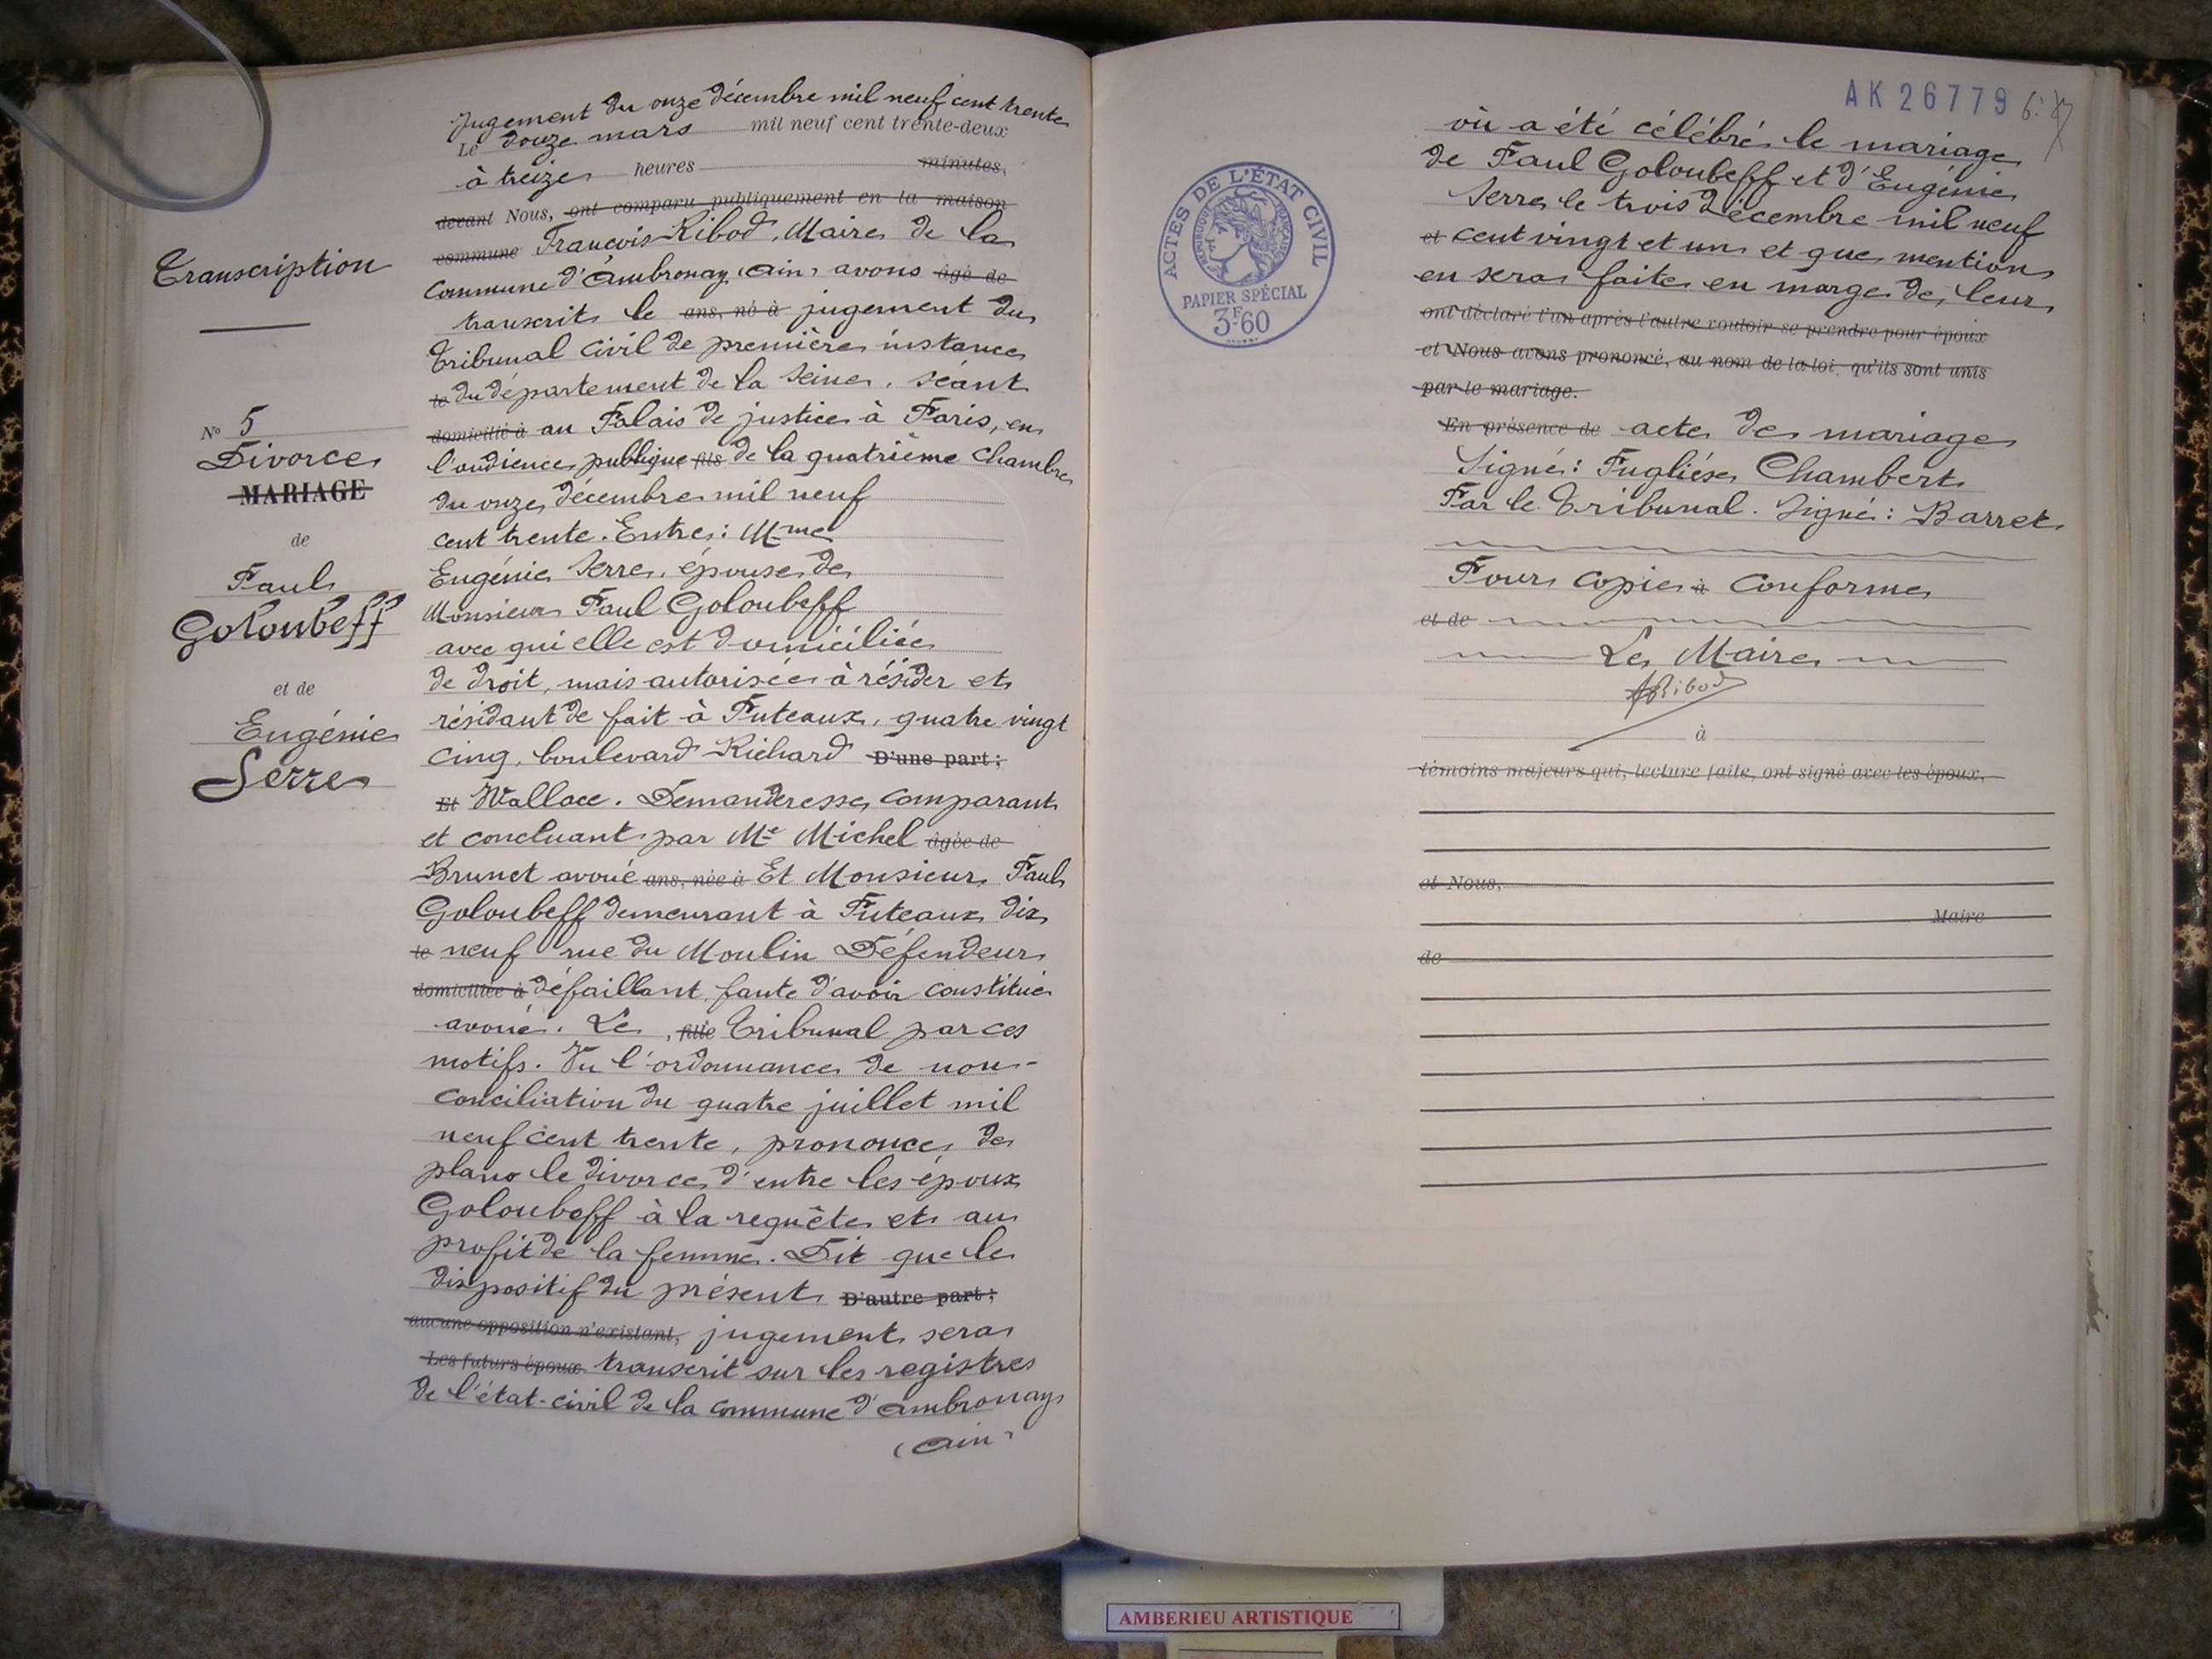 Transcription
N° 5
Divorce
MARIAGE
de
Paul
Goloubeff
et de
Eugénie
Serre
Jugement du onze décembre mil neuf cent trente
Le douze mars mil neuf cent trente-deux
à treize heures minutes,
devant Nous, ont comparu publiquement en la maison
commune François Ribod, Maire de la
commune d'Ambronay (Ain) avons âgé de
transcrit le ans, né à jugement du
Tribunal Civil de première instance
le du département de la Seine, séant
domicilié à au Palais de justice à Paris, en
l'audience publique fils de la quatrième Chambre
du onze décembre mil neuf
cent trente. Entre: Mme
Eugénie Serre, épouse de
Monsieur Paul Goloubeff
avec qui elle est domiciliée
de droit, mais autorisée à résider et
résidant de fait à Puteaux, quatre vingt
cinq, boulevard Richard D'une part;
Et Wallace. Demanderesse, comparant
et concluant par Me Michel âgée de
Brunet avoué ans, née à Et Monsieur Paul
Goloubeff demeurant à Puteaux dix
le neuf rue du Moulin Défendeur
domiciliée à défaillant faute d'avoir constitué
avoué. Le , fille Tribunal par ces
motifs. Vu l'ordonnance de non-
conciliation du quatre juillet mil
neuf cent trente, prononce de
plano le divorce d'entre les époux
Goloubeff à la requête et au
profit de la femme. Dit que le
dispositif du présent D'autre part;
aucune opposition n'existant, jugement sera
Les futurs époux transcrit sur les registres
de l'état-civil de la commune d'Ambronay
(Ain)
AK 26779
où a été célébré le mariage
de Paul Goloubeff et d'Eugénie
Serre le trois Décembre mil neuf
et cent vingt et un et que mention
en sera faite en marge de leur
ont déclaré l'un après l'autre vouloir se prendre pour époux
et Nous avons prononcé, au nom de la loi, qu'ils sont unis
par le mariage.
En présence de acte de mariage
Signé: Pugliése Chambert
Par le Tribunal. Signé: Barret
Pour copie à conforme
et de
Le Maire
Ribod
à
témoins majeurs qui, lecture faite, ont signé avec les époux,
et Nous,
Maire
de
ACTES DE L'ÉTAT CIVIL
RÉPUBLIQUE FRANÇAISE
PAPIER SPÉCIAL
3F60
AMBERIEU ARTISTIQUE